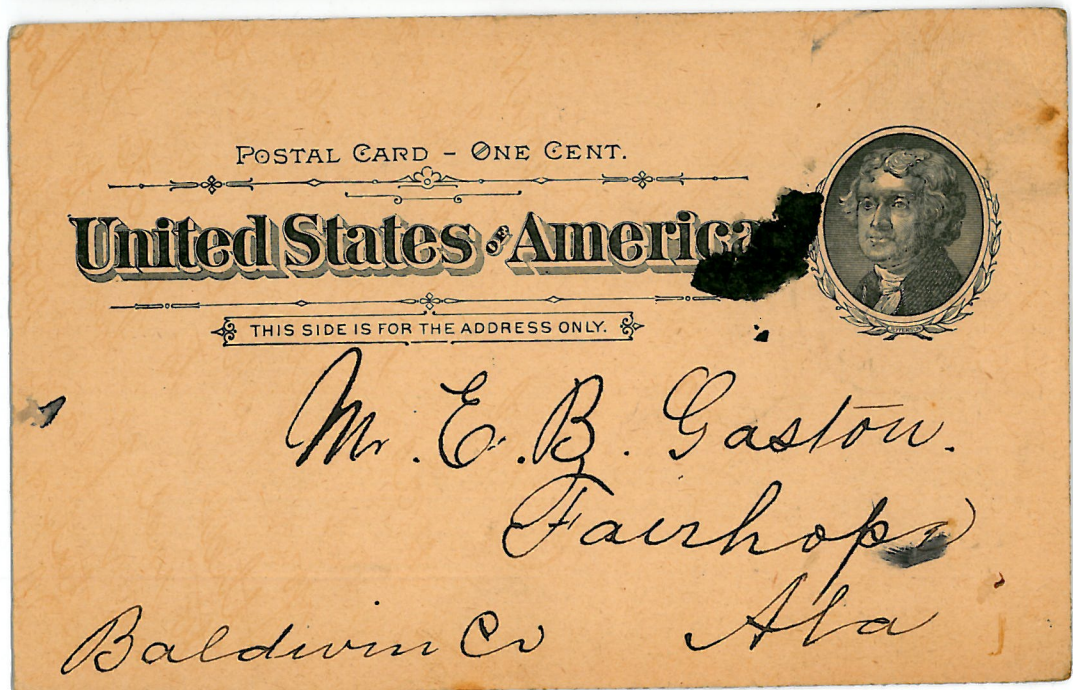 POSTAL CARD - ONE CENT.
United States OF America
THIS SIDE IS FOR THE ADDRESS ONLY.
JEFFERSON
Mr. E. B. Gaston.
Fairhope
Ala
Baldwin Co